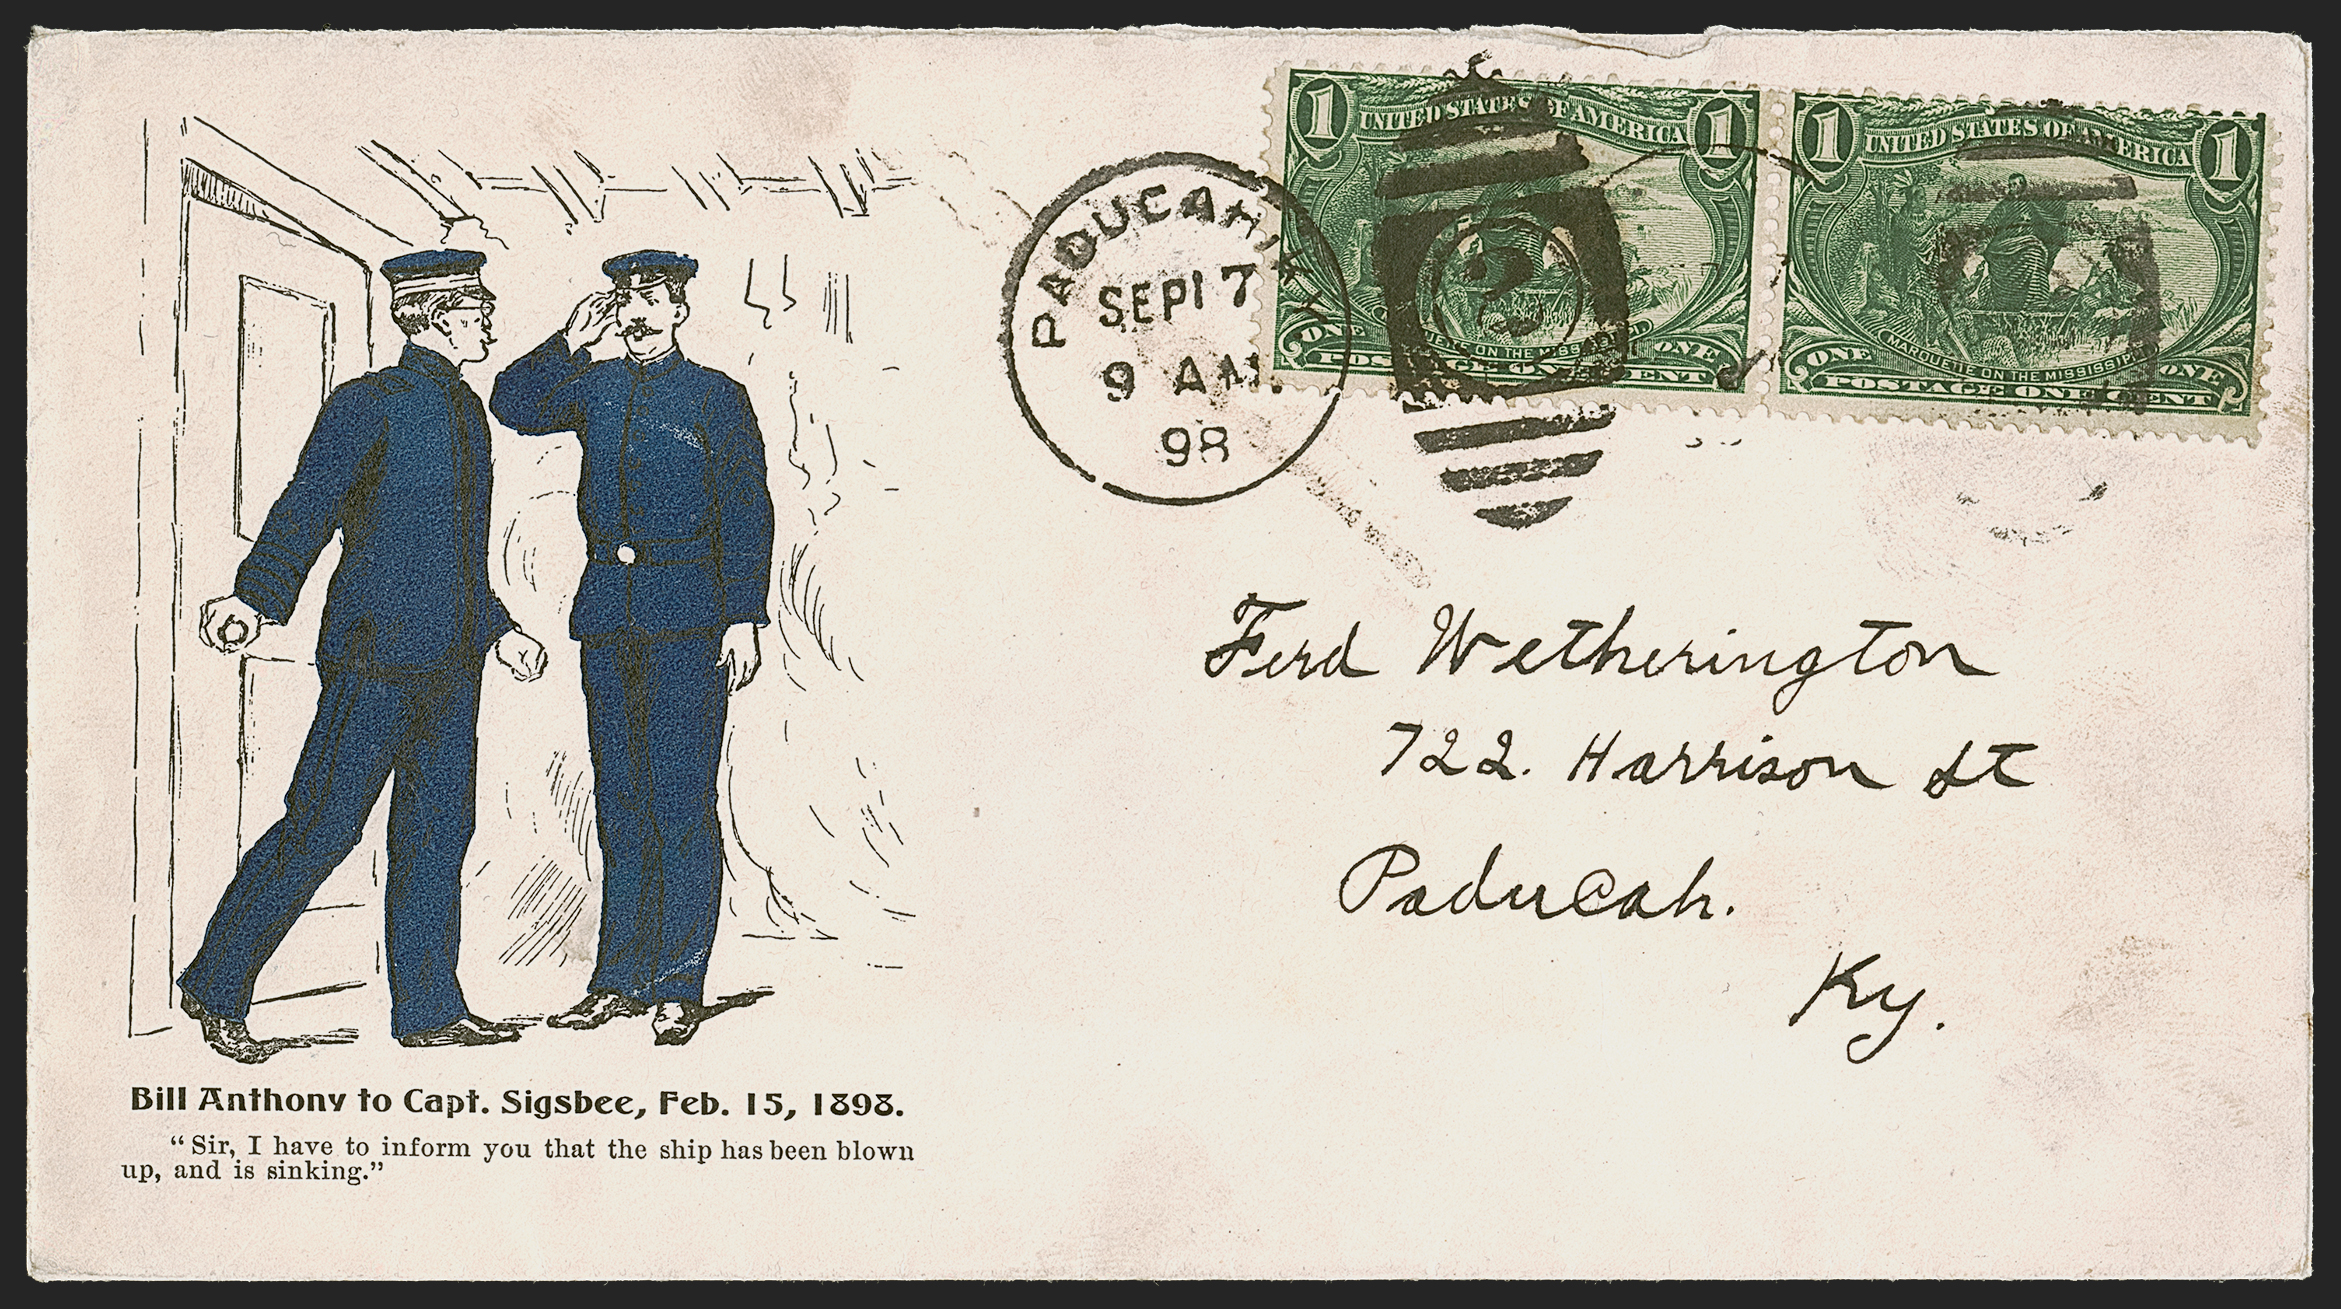 Bill Anthony to Capt. Sigsbee, Feb. 15, 1898.
“Sir, I have to inform you that the ship has been blown
up, and is sinking.”
PADUCAH, KY.
SEP 17
9 AM.
98
2
1 UNITED STATES OF AMERICA 1
ONE MARQUETTE ON THE MISSISSIPPI ONE
POSTAGE ONE CENT
1 UNITED STATES OF AMERICA 1
ONE MARQUETTE ON THE MISSISSIPPI ONE
POSTAGE ONE CENT
Ferd Wetherington
722. Harrison St
Paducah.
Ky.